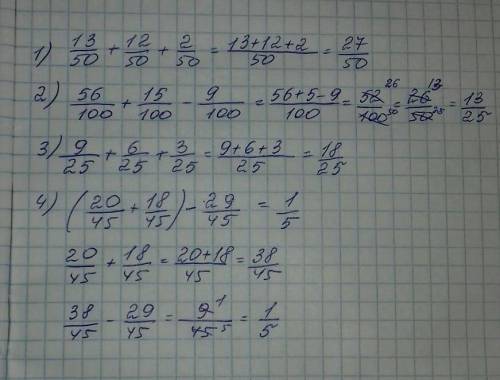 1) 13/50 + 12/50 + 2/50 = 13+12+2/50 = 27/50
2) 56/100 + 15/100 - 9/100 = 56+5-9/100 = 52 26/100 50 = 26 13/50 25 = 13/25
3) 9/25 + 6/25 + 3/25 = 9+6+3/25 = 18/25
4) (20/45 + 18/45) - 29/45 = 1/5
20/45 + 18/45 = 20+18/45 = 38/45
38/45 - 29/45 = 9 1/45 5 = 1/5